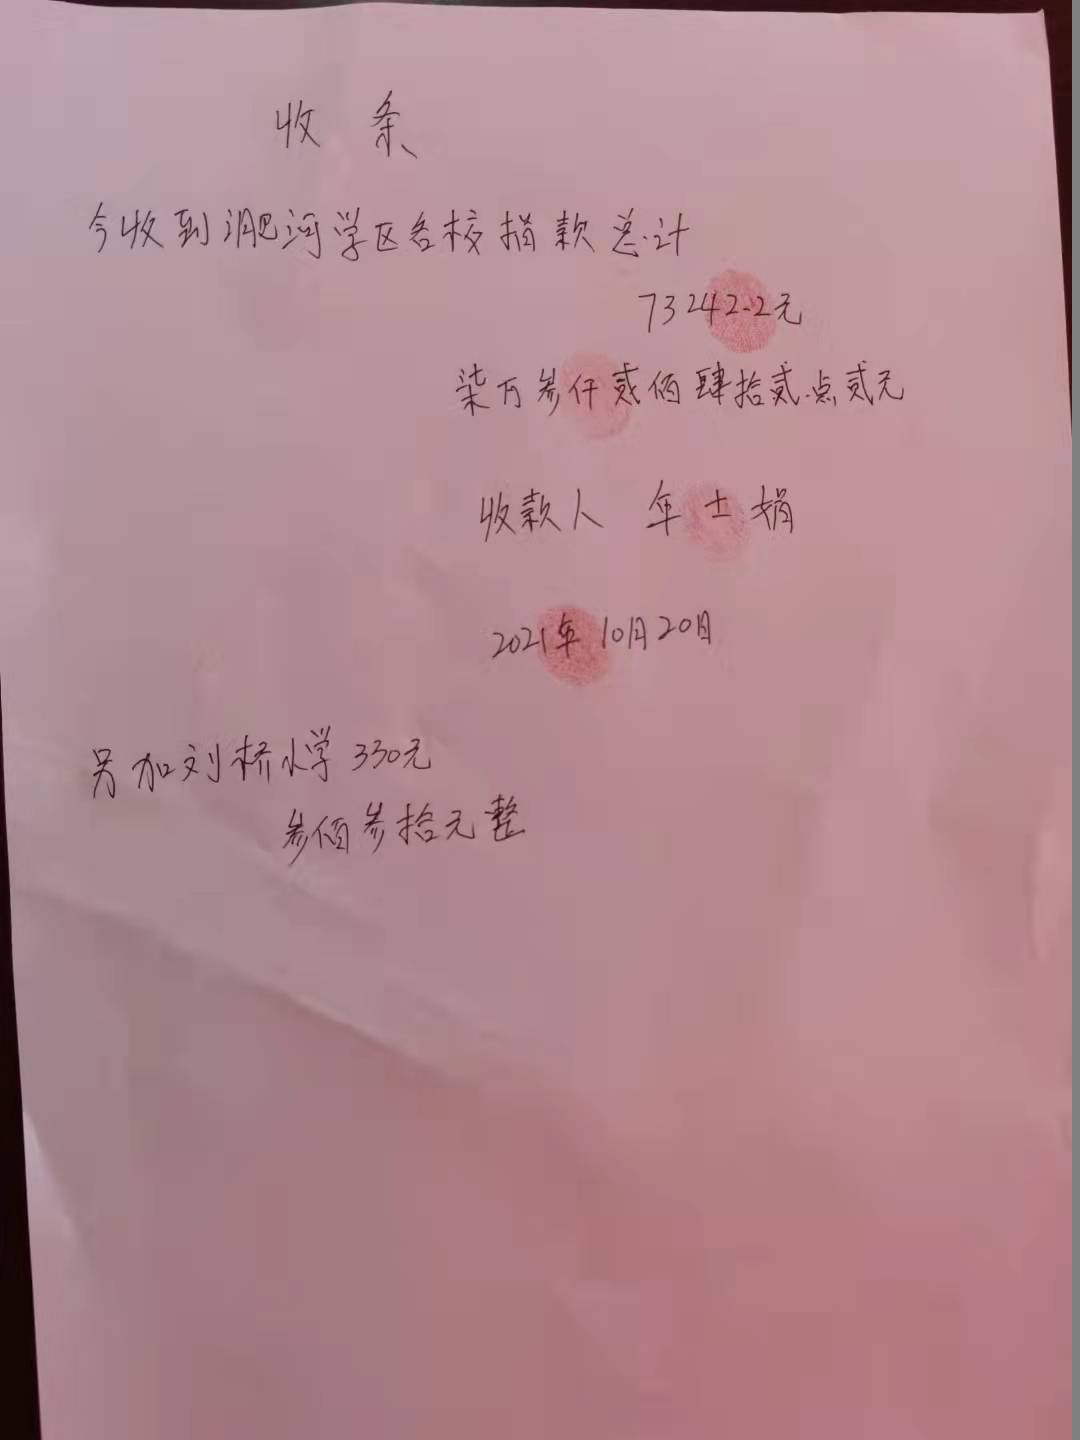 收 条
今收到淝河学区各校捐款总计
73242.2元
柒万参仟贰佰肆拾贰点贰元
收款人 年士娟
2021年10月20日
另加刘桥小学330元
参佰参拾元整